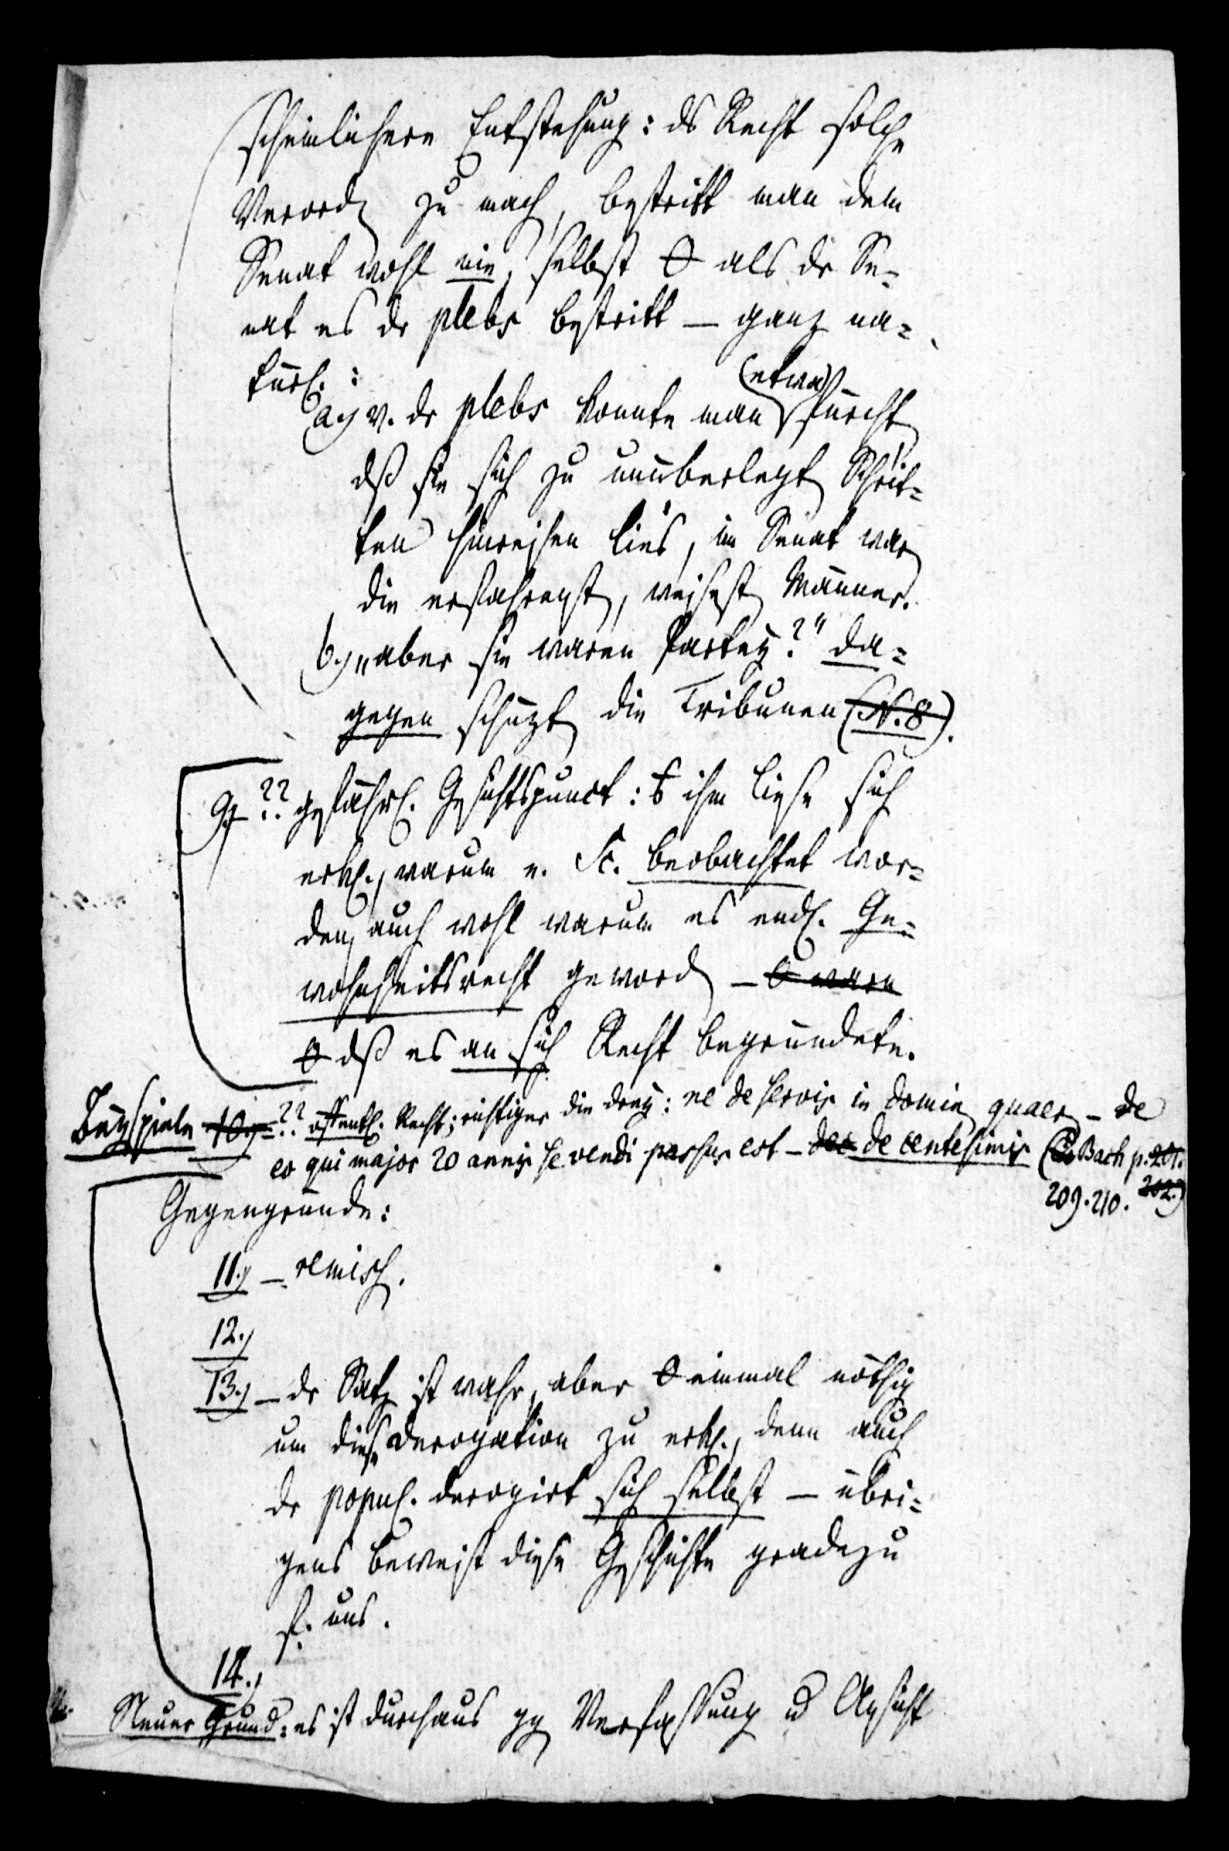 scheinlichere Entstehung: ds Recht solche
Verord zu mach, bestritt man dem
Senat wohl nie, selbst O als dr Se-
nat es dr plebs bestritt — ganz na-
türl. :
a.) v. dr plebs konnte man (etwa) fürcht
dß sie sich zu unüberlegt Schrit-
ten hinreisen lies, im Senat war
die erfahrenst, weisest Männer.
b.) „aber sie waren Partey?" da-
gegen schüzt die Tribunen (N. 8).
9.) ?? gefährl. Gesichtspunct: ihm liese sich
erkl., warum e. Sc. beobachtet wor-
den, auch wohl warum es endl. Ge-
wohnheitsrecht geword — O warn
O dß es an sich Recht begründete.
Beyspiele 10.) ?? öffentl. Recht; richtiger die drey: ne de servis in domin quaer — de
eo qui major 20 annis se vendi passus est — dec de centesimis (Bach p. 201.
209. 210. 202.)
Gegengründe:
11.) — remisch.
12.)
13.) — dr Satz ist wahr, aber O einmal nöthig
um diese Derogation zu erkl., denn auch
dr popul. derogirt sich selbst — übri-
gens beweist diese Geschichte gradezu
f. uns.
14.)
Neuer Grund: es ist durchaus gg Verfassung u Ansicht